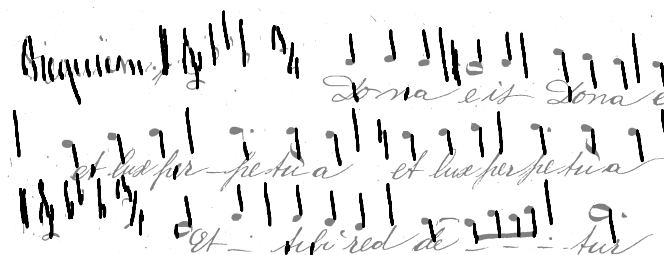 Requiem. Dona eis Dona e
et lux per-petua et lux perpetua
Et - tibi red de - - - tur